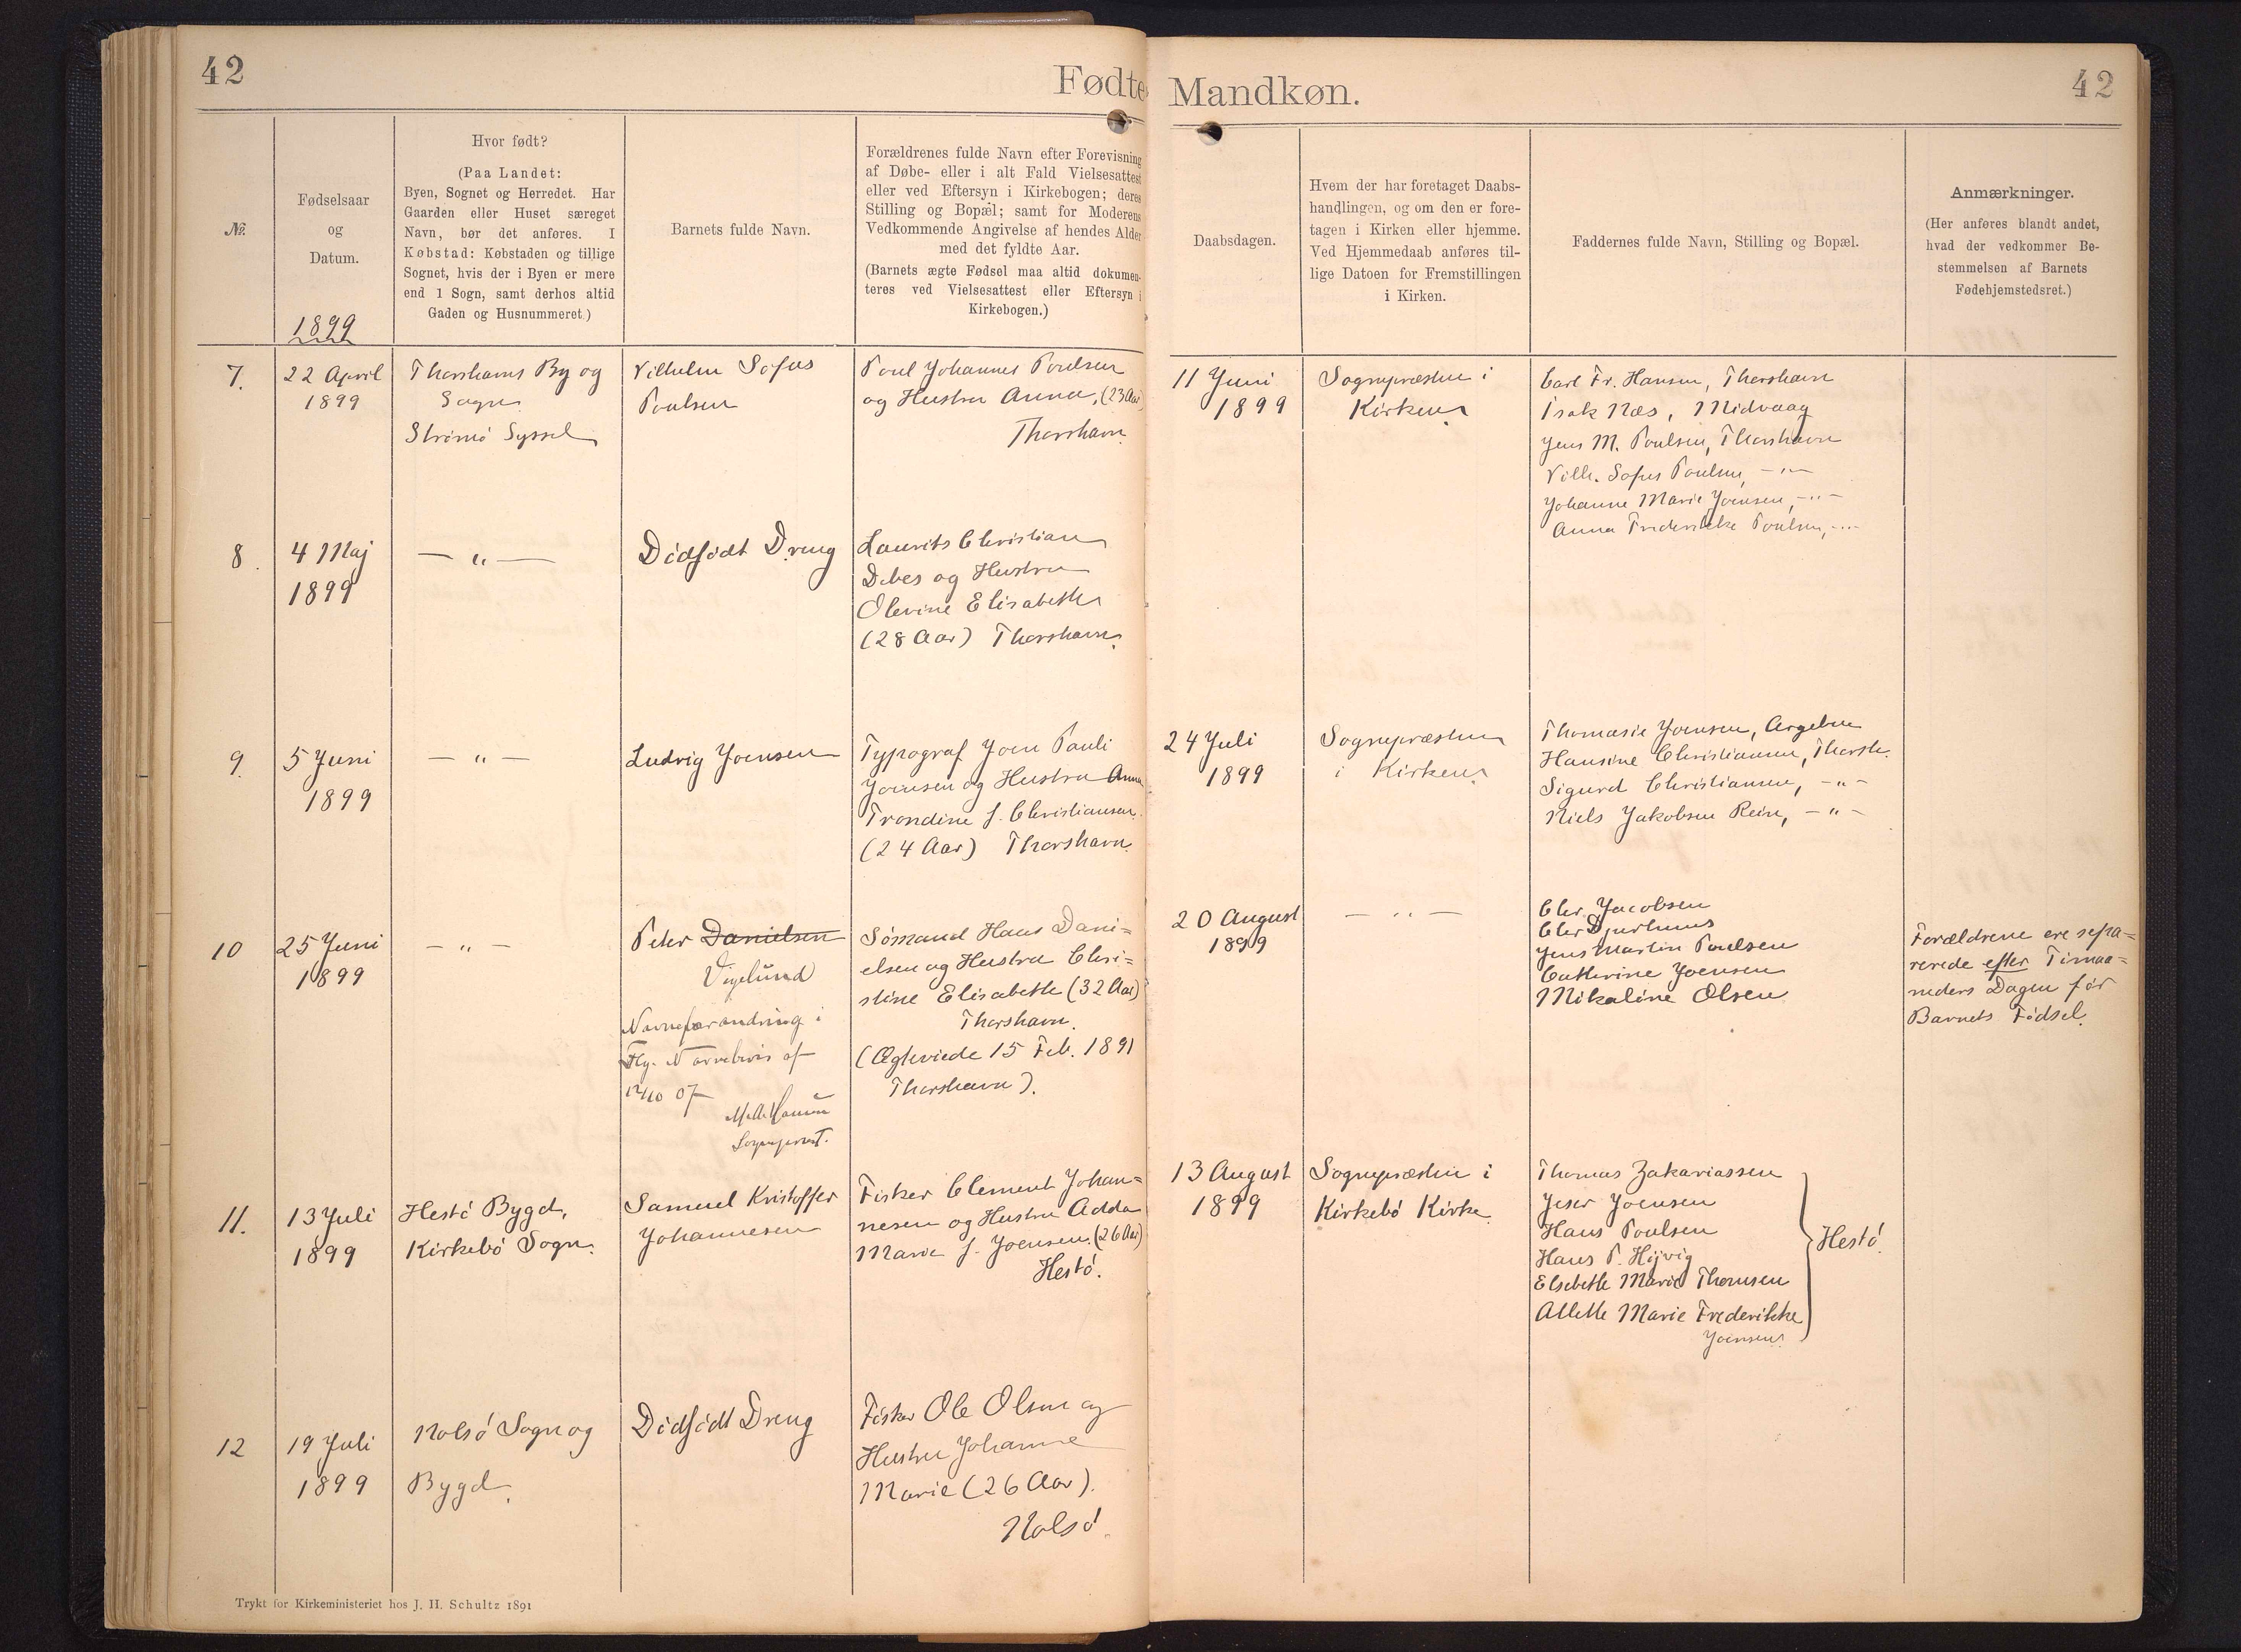 42
Fødte
Mandkøn.
42
№.
Fødselsaar
og
Datum.
1899
Hvor født?
(Paa Landet:
Byen, Sognet og Herredet. Har
Gaarden eller Huset særeget
Navn, bør det anføres. I
Købstad: Købstaden og tillige
Sognet, hvis der i Byen er mere
end 1 Sogn, samt derhos altid
Gaden og Husnummeret.)
Barnets fulde Navn.
Forældrenes fulde Navn efter Forevisning
af Døbe- eller i alt Fald Vielsesattest
eller ved Eftersyn i Kirkebogen; deres
Stilling og Bopæl; samt for Moderens
Vedkommende Angivelse af hendes Alder
med det fyldte Aar.
(Barnets ægte Fødsel maa altid dokumen-
teres ved Vielsesattest eller Eftersyn i
Kirkebogen.)
Daabsdagen.
Hvem der har foretaget Daabs-
handlingen, og om den er fore-
tagen i Kirken eller hjemme.
Ved Hjemmedaab anføres til-
lige Datoen for Fremstillingen
i Kirken.
Faddernes fulde Navn, Stilling og Bopæl.
Anmærkninger.
(Her anføres blandt andet,
hvad der vedkommer Be-
stemmelsen af Barnets
Fødehjemstedsret.)
7.
22 April
1899
Thorshavns By og
Sogn
Strømø Syssel
Vilhelm Sofus
Poulsen
Poul Johannes Poulsen
og Hustru Anna, (23 Aar)
Thorshavn.
11 Juni
1899
Sognepræsten i
Kirken.
Carl Fr. Hansen, Thorshavn
Isak Næs, Midvaag
Jens M. Poulsen, Thorshavn
Vilh. Sofus Poulsen, -"-
Johanne Marie Joensen, -"-
Anna Frederikke Poulsen, -"-
8.
4 Maj
1899
- " -
Dødfødt Dreng
Laurits Christian
Debes og Hustru
Olevine Elisabeth
(28 Aar) Thorshavn.
9.
5 Juni
1899
- " -
Ludvig Joensen
Typograf Joen Pauli
Joensen og Hustru Anna
Trondine f. Christiansen.
(24 Aar) Thorshavn.
24 Juli
1899
Sognepræsten
i Kirken.
Thomasie Joensen, Argebne
Hansine Christiansen, Thorsh.
Sigurd Christiansen, -"-
Niels Jakobsen Rein, -"-
10
25 Juni
1899
- " -
Peter Danielsen
Vigelund
Navneforandring i
Flg. Navnebevis af
07
Sognepræst.
Sømand Hans Dani=
elsen og Hustru Chri=
stine Elisabeth (32 Aar)
Thorshavn.
(Ægteviede 15 Feb. 1891
Thorshavn).
20 August
1899
- " -
Chr. Jacobsen
Chr Djurhuus
Jens Martin Poulsen
Cathrine Joensen
Mikaline Olsen
Forældrene ere sepa=
rerede efter Timaa=
neders Dagen før
Barnets Fødsel.
11.
13 Juli
1899
Hestø Bygd,
Kirkebø Sogn.
Samuel Kristoffer
Johannesen
Fisker Clement Johan=
nesen og Hustru Adda
Marie f. Joensen. (26 Aar)
Hestø.
13 August
1899
Sognepræsten i
Kirkebø Kirke.
Thomas Zakariassen
Joensen
Hans Poulsen
Hans P. Højvig
Elsebeth Marie Thomsen
Allette Marie Frederikke
Joensen.
Hestø.
12
19 Juli
1899
Nolsø Sogn og
Bygd.
Dødfødt Dreng
Fisker Ole Olsen og
Hustru Johanne
Marie (26 Aar).
Nolsø.
Trykt for Kirkeministeriet hos J. H. Schultz 1891